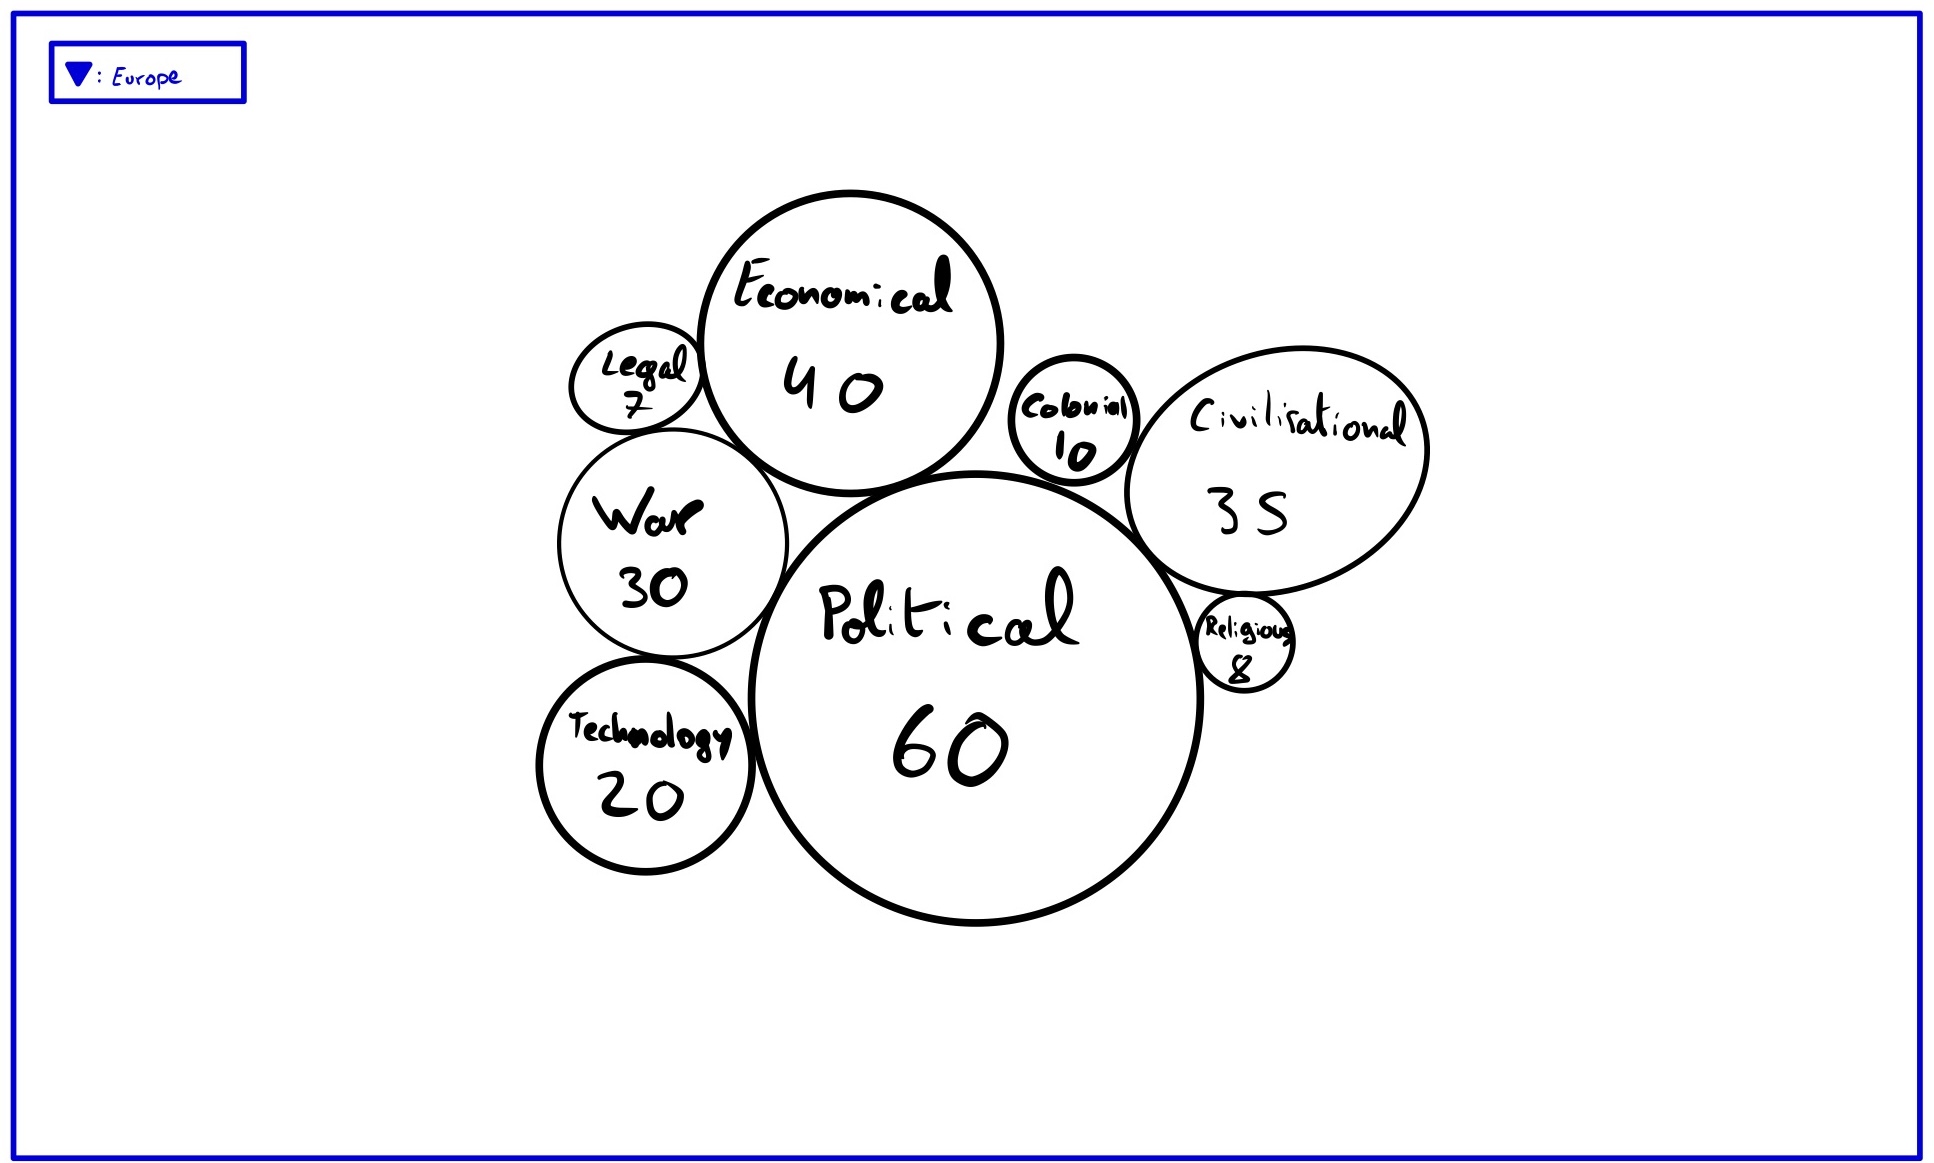 ▼: Europe
Economical
40
Legal
7
Colonial
10
Civilisational
35
War
30
Political
60
Religious
8
Technology
20